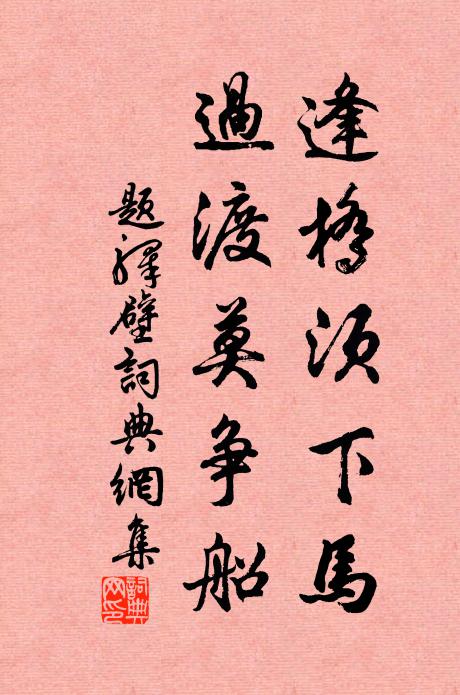 逢橋須下馬
過渡莫争船
题驛壁詞典網集
詞典网印